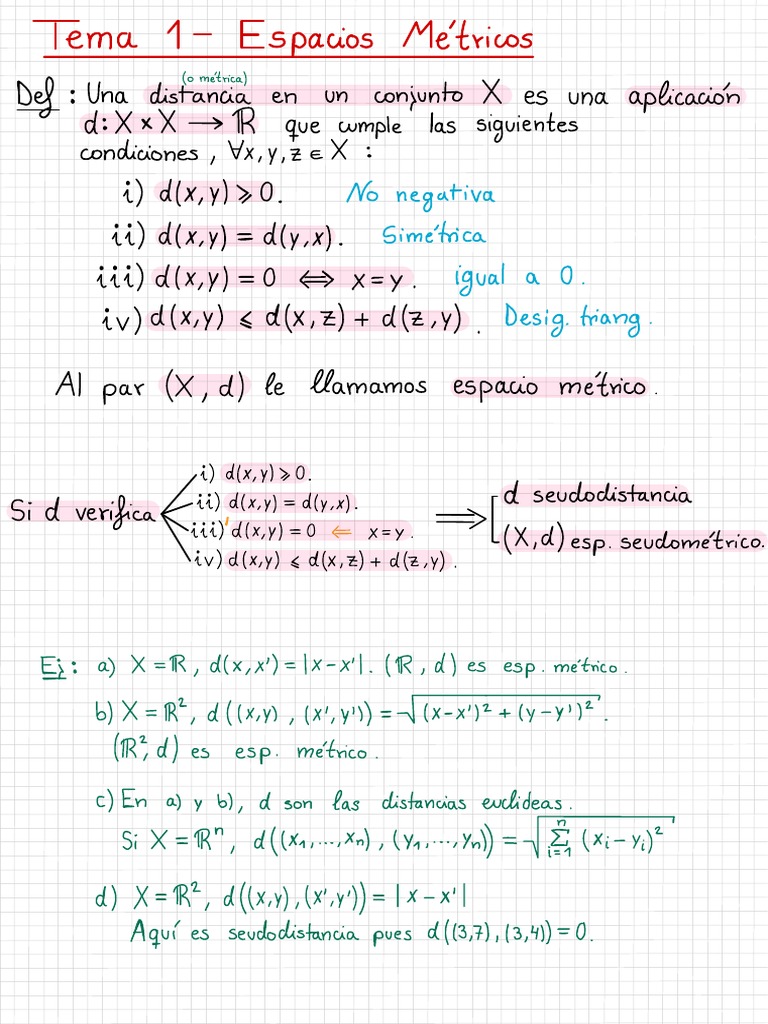 Tema 1 - Espacios Métricos
(o métrica)
Def: Una distancia en un conjunto X es una aplicación
d: X × X ⟶ ℝ que cumple las siguientes
condiciones, ∀x,y,z ∈ X :
i) d(x,y) ⩾ 0. No negativa
ii) d(x,y) = d(y,x). Simétrica
iii) d(x,y) = 0 ⟺ x = y. igual a 0.
iv) d(x,y) ⩽ d(x,z) + d(z,y). Desig. triang.
Al par (X, d) le llamamos espacio métrico.
i) d(x,y) ⩾ 0.
ii) d(x,y) = d(y,x).
iii)' d(x,y) = 0 ⇐ x = y.
iv) d(x,y) ⩽ d(x,z) + d(z,y).
Si d verifica
⟹
d seudodistancia
(X,d) esp. seudométrico.
Ej: a) X = ℝ, d(x,x') = |x-x'|. (ℝ, d) es esp. métrico.
b) X = ℝ², d((x,y), (x',y')) = √((x-x')² + (y-y')²).
(ℝ², d) es esp. métrico.
c) En a) y b), d son las distancias euclideas.
Si X = ℝⁿ, d((x₁,...,xₙ), (y₁,...,yₙ)) = √(∑ᵢ₌₁ⁿ (xᵢ - yᵢ)²)
d) X = ℝ², d((x,y), (x',y')) = |x - x'|
Aquí es seudodistancia pues d((3,7), (3,4)) = 0.